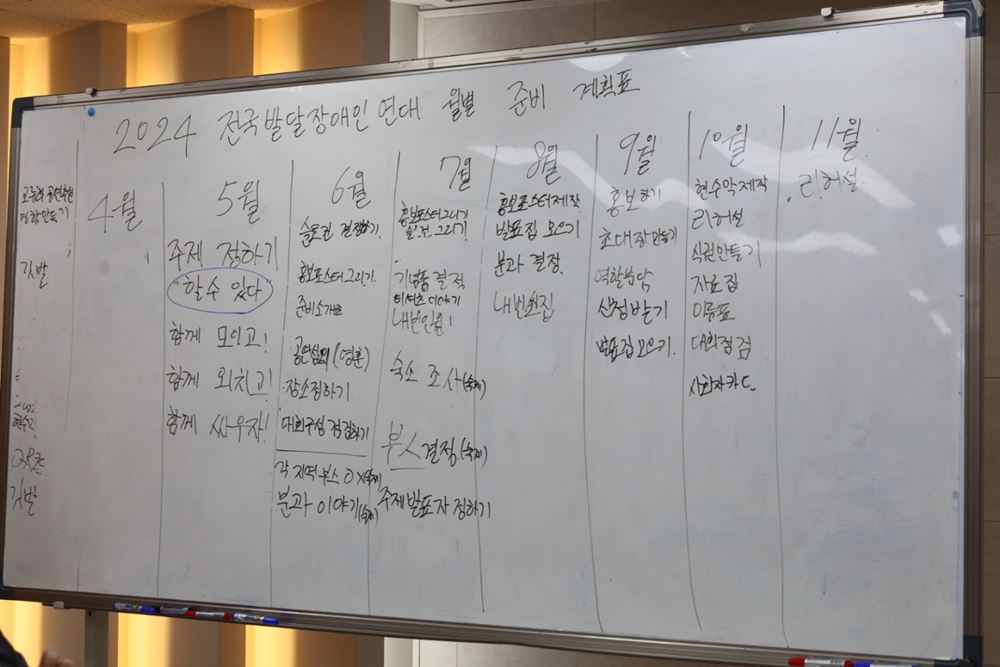 2024 전국발달장애인연대 월별 준비 계획표
깃발
현수막
깃발
4월
5월
주제 정하기
"할 수 있다"
함께 모이고!
함께 외치고!
함께 싸우자!
6월
슬로건 결정하기.
홍보포스터그리기.
준비소개
(영훈)
장소정하기
대회구성 점검하기
각 지역 부스 O X(숙제)
분과 이야기(숙제)
7월
홍보포스터그리기
그리기.
기념품 결정
티셔츠 이야기
숙소 조사(숙제)
부스 결정.(숙제)
주제발표자 정하기
8월
홍보포스터제작
발표집 모으기
분과 결정.
9월
홍보하기
초대장만들기
역할분담
신청받기
발표집 모으기.
10월
현수막제작
리허설
식권만들기
자료집
이름표
대회점검
사회자카드
11월
리허설